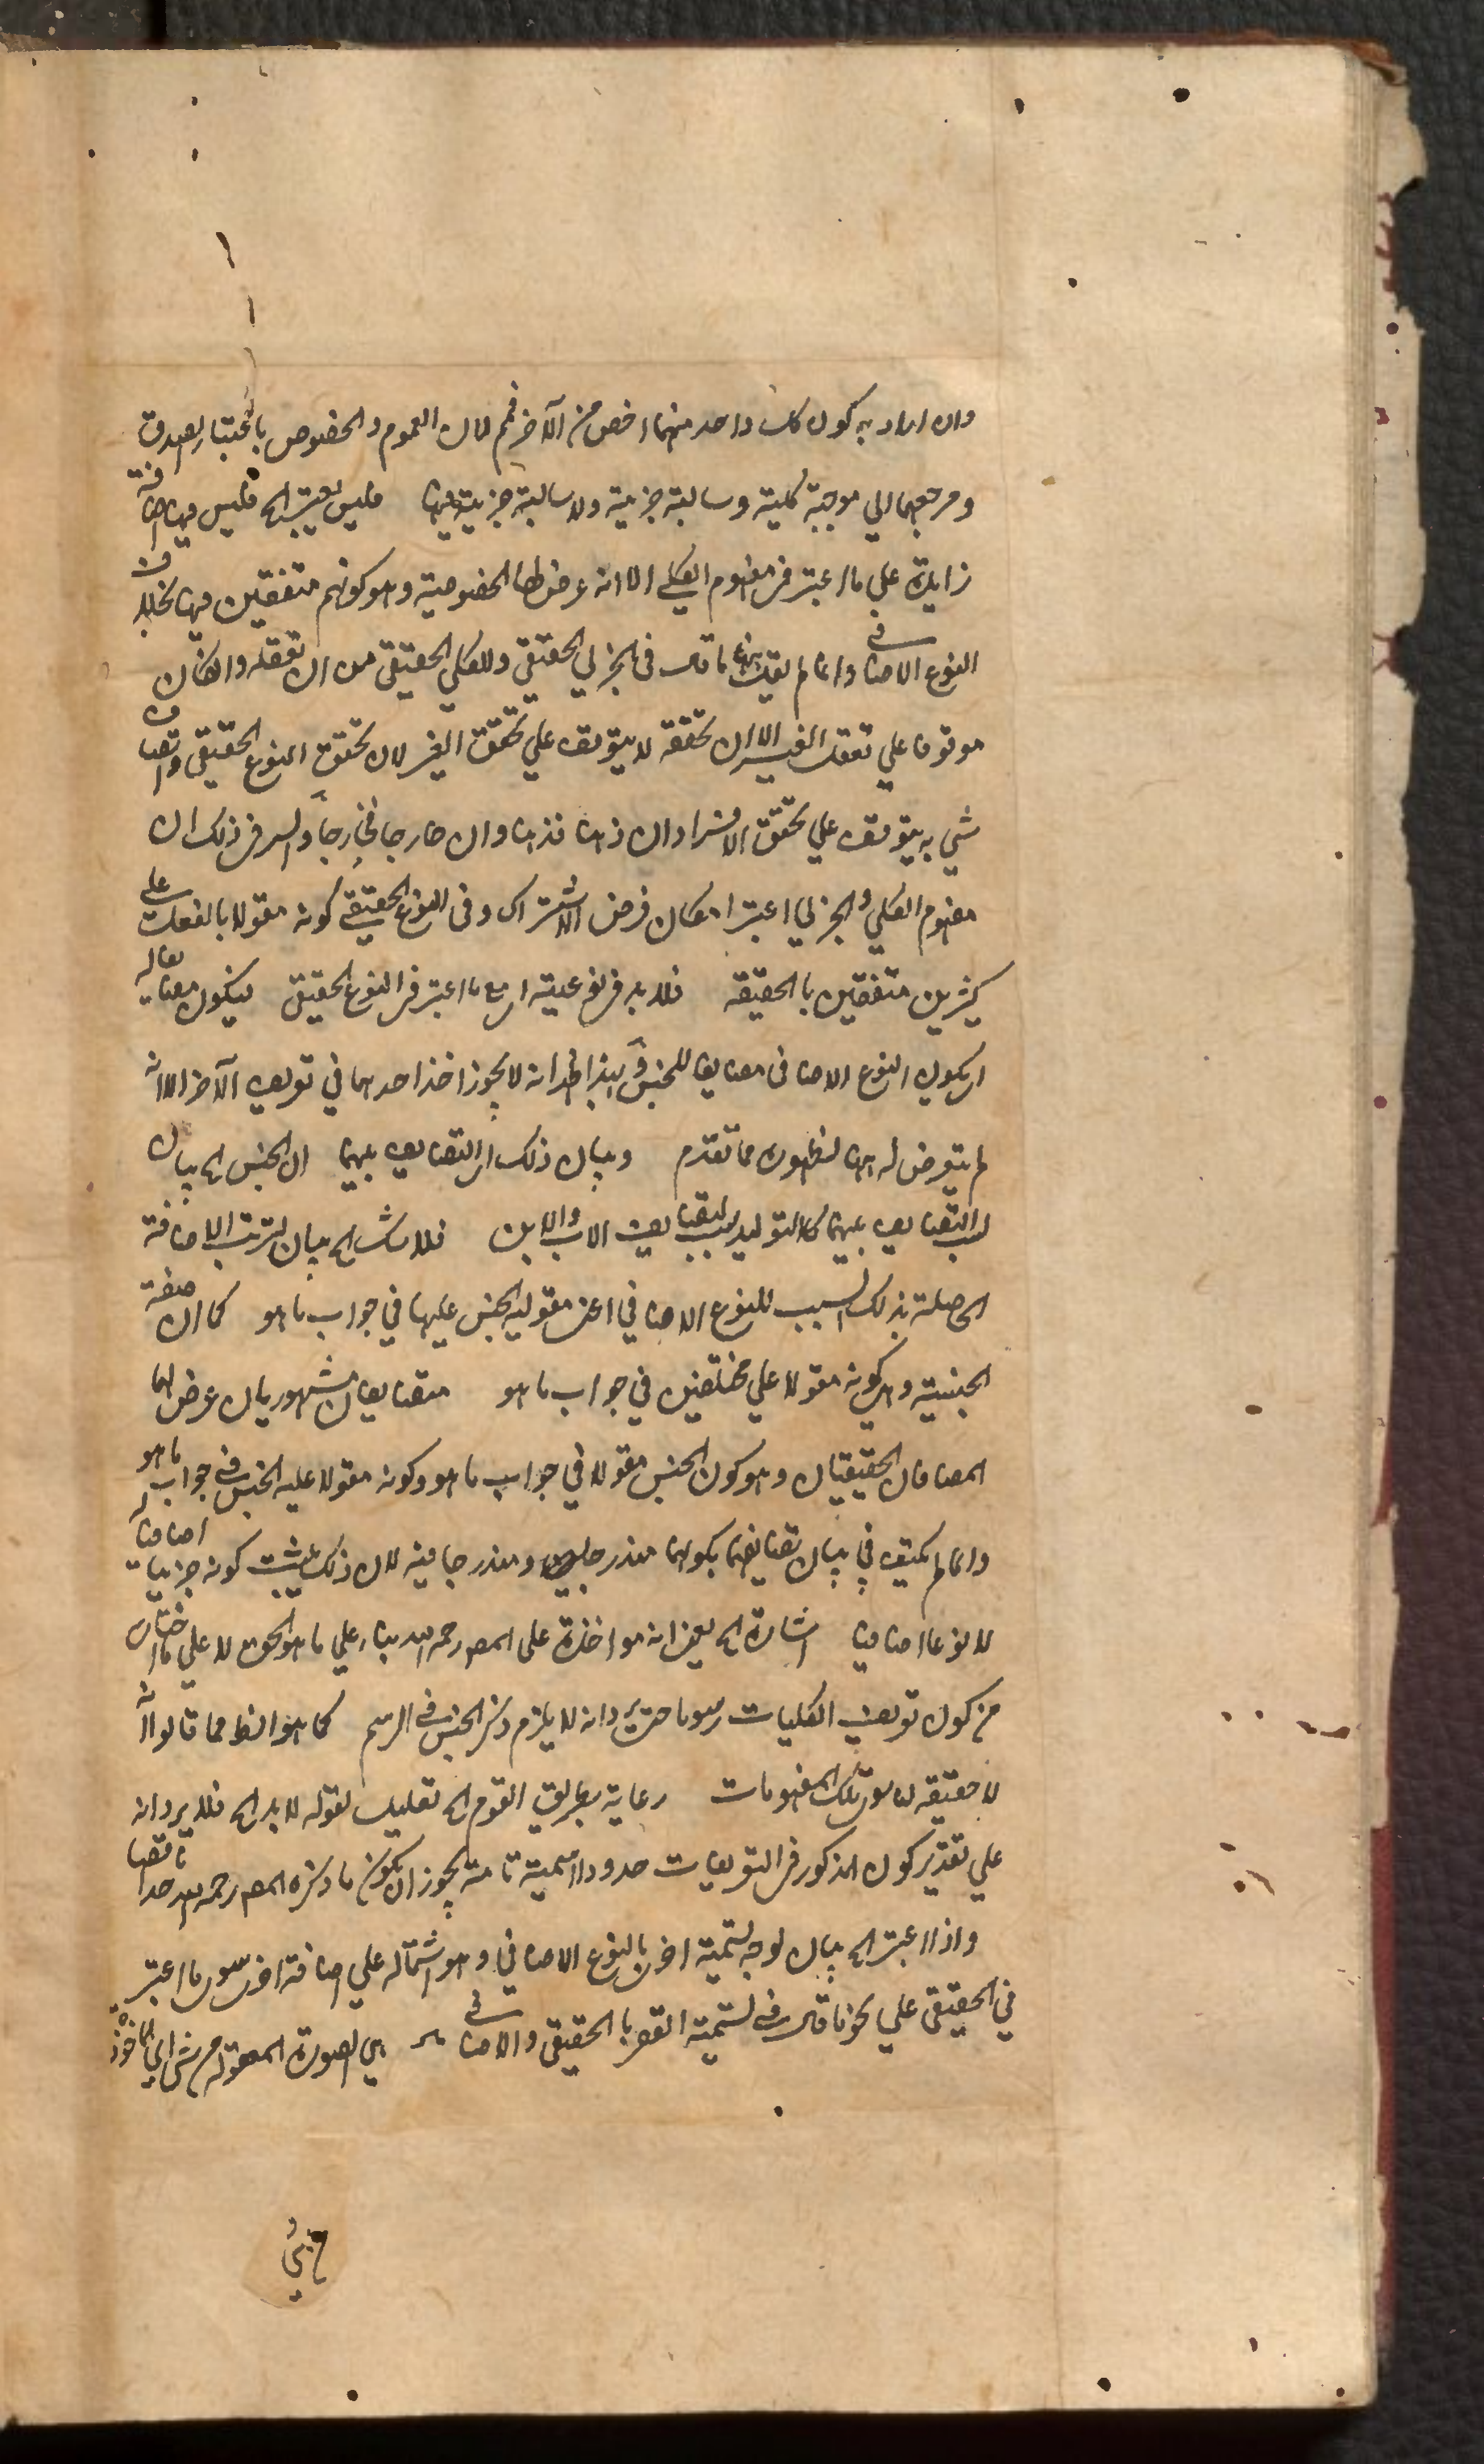 وان اراد به كون كل واحد منهما اخص من الآخر فمم لان العموم والخصوص باعتبار الصدق
ومرجعهما الي موجبة كلية وسالبة جزئية ولا سالبة جزئية فيهما فليس يعتبر الخ فليس فيها اضافة
زايدة علي ما اعتبر في مفهوم الكلي الا انه عرض لها الخصوصية وهو كونهم متفقين فيها بخلاف
النوع الاضافي وانما لم يقل ما قال في الجزئي الحقيقي وللكلي الحقيقي من ان تعقله وان كان
موقوفا علي تعقل الغير الا ان تحققه لا يتوقف علي تحقق الغير لان تحقق النوع الحقيقي واتصاف
شي به يتوقف علي تحقق الافراد ان ذهنا فذهنا وان خارجا فخارجا والسر في ذلك ان
مفهوم الكلي والجزئي اعتبر امكان فرض الاشتراك وفي النوع الحقيقي كونه مقولا بالفعل على
كثيرين متفقين بالحقيقه فلا بد في نوعيته اي مع ما اعتبر في النوع الحقيقي ليكون مضايفا له
اي كون النوع الاضافي مضايفا للجنس وبهذا ظهر انه لا يجوز اخذ احدهما في تعريف الآخر الا انه
لم يتعرض له ههنا لظهوره مما تقدم وبيان ذلك اي التضايف بينهما ان الجنس الخ بيان
لسبب التضايف بينهما كالتوليد لسبب تضايف الاب والابن فلا شك الخ بيان لترتب الاضافة
الحاصلة بذلك السبب للنوع الاضافي اعني مقولية الجنس عليها في جواب ما هو كما ان صفة
الجنسية وهي كونه مقولا علي مختلفين في جواب ما هو متضايفان مشهوريان عرض لهما
المضافان الحقيقيان وهو كون الجنس مقولا في جواب ما هو وكونه مقولا عليه الجنس في جواب ما هو
وانما لم يكتف في بيان تضايفهما بكونهما مندرجا فيه لان ذلك يثبت كونه جزئيا اضافيا
لا نوعا اضافيا اشارة الخ يعني انه مواخذة على المصر رحمه الله بناء علي ما هو الحق لا علي ما اختاره
من كون تعريف الكليات رسوما حتى يرد انه لا يلزم ذكر الجنس في الرسم كما هو الظ مما قالوا انه
لا حقيقه لها سوى تلك المفهومات رعاية بطريق القوم الخ تعليل لقوله لا بد الخ فلا يرد انه
علي تقدير كون المذكور في التعريفات حدودا اسمية تامة يجوز ان يكون ما ذكره المصر رحمه الله حدا ناقصا
واذا اعتبر الخ بيان لوجه تسمية اخرى بالنوع الاضافي وهو اشتماله علي اضافة اخرى سوى ما اعتبر
في الحقيقي علي نحو ما قال في تسمية القصر بالحقيقي والاضافي هي الصورة المعقولة من شي اي الماخوذة